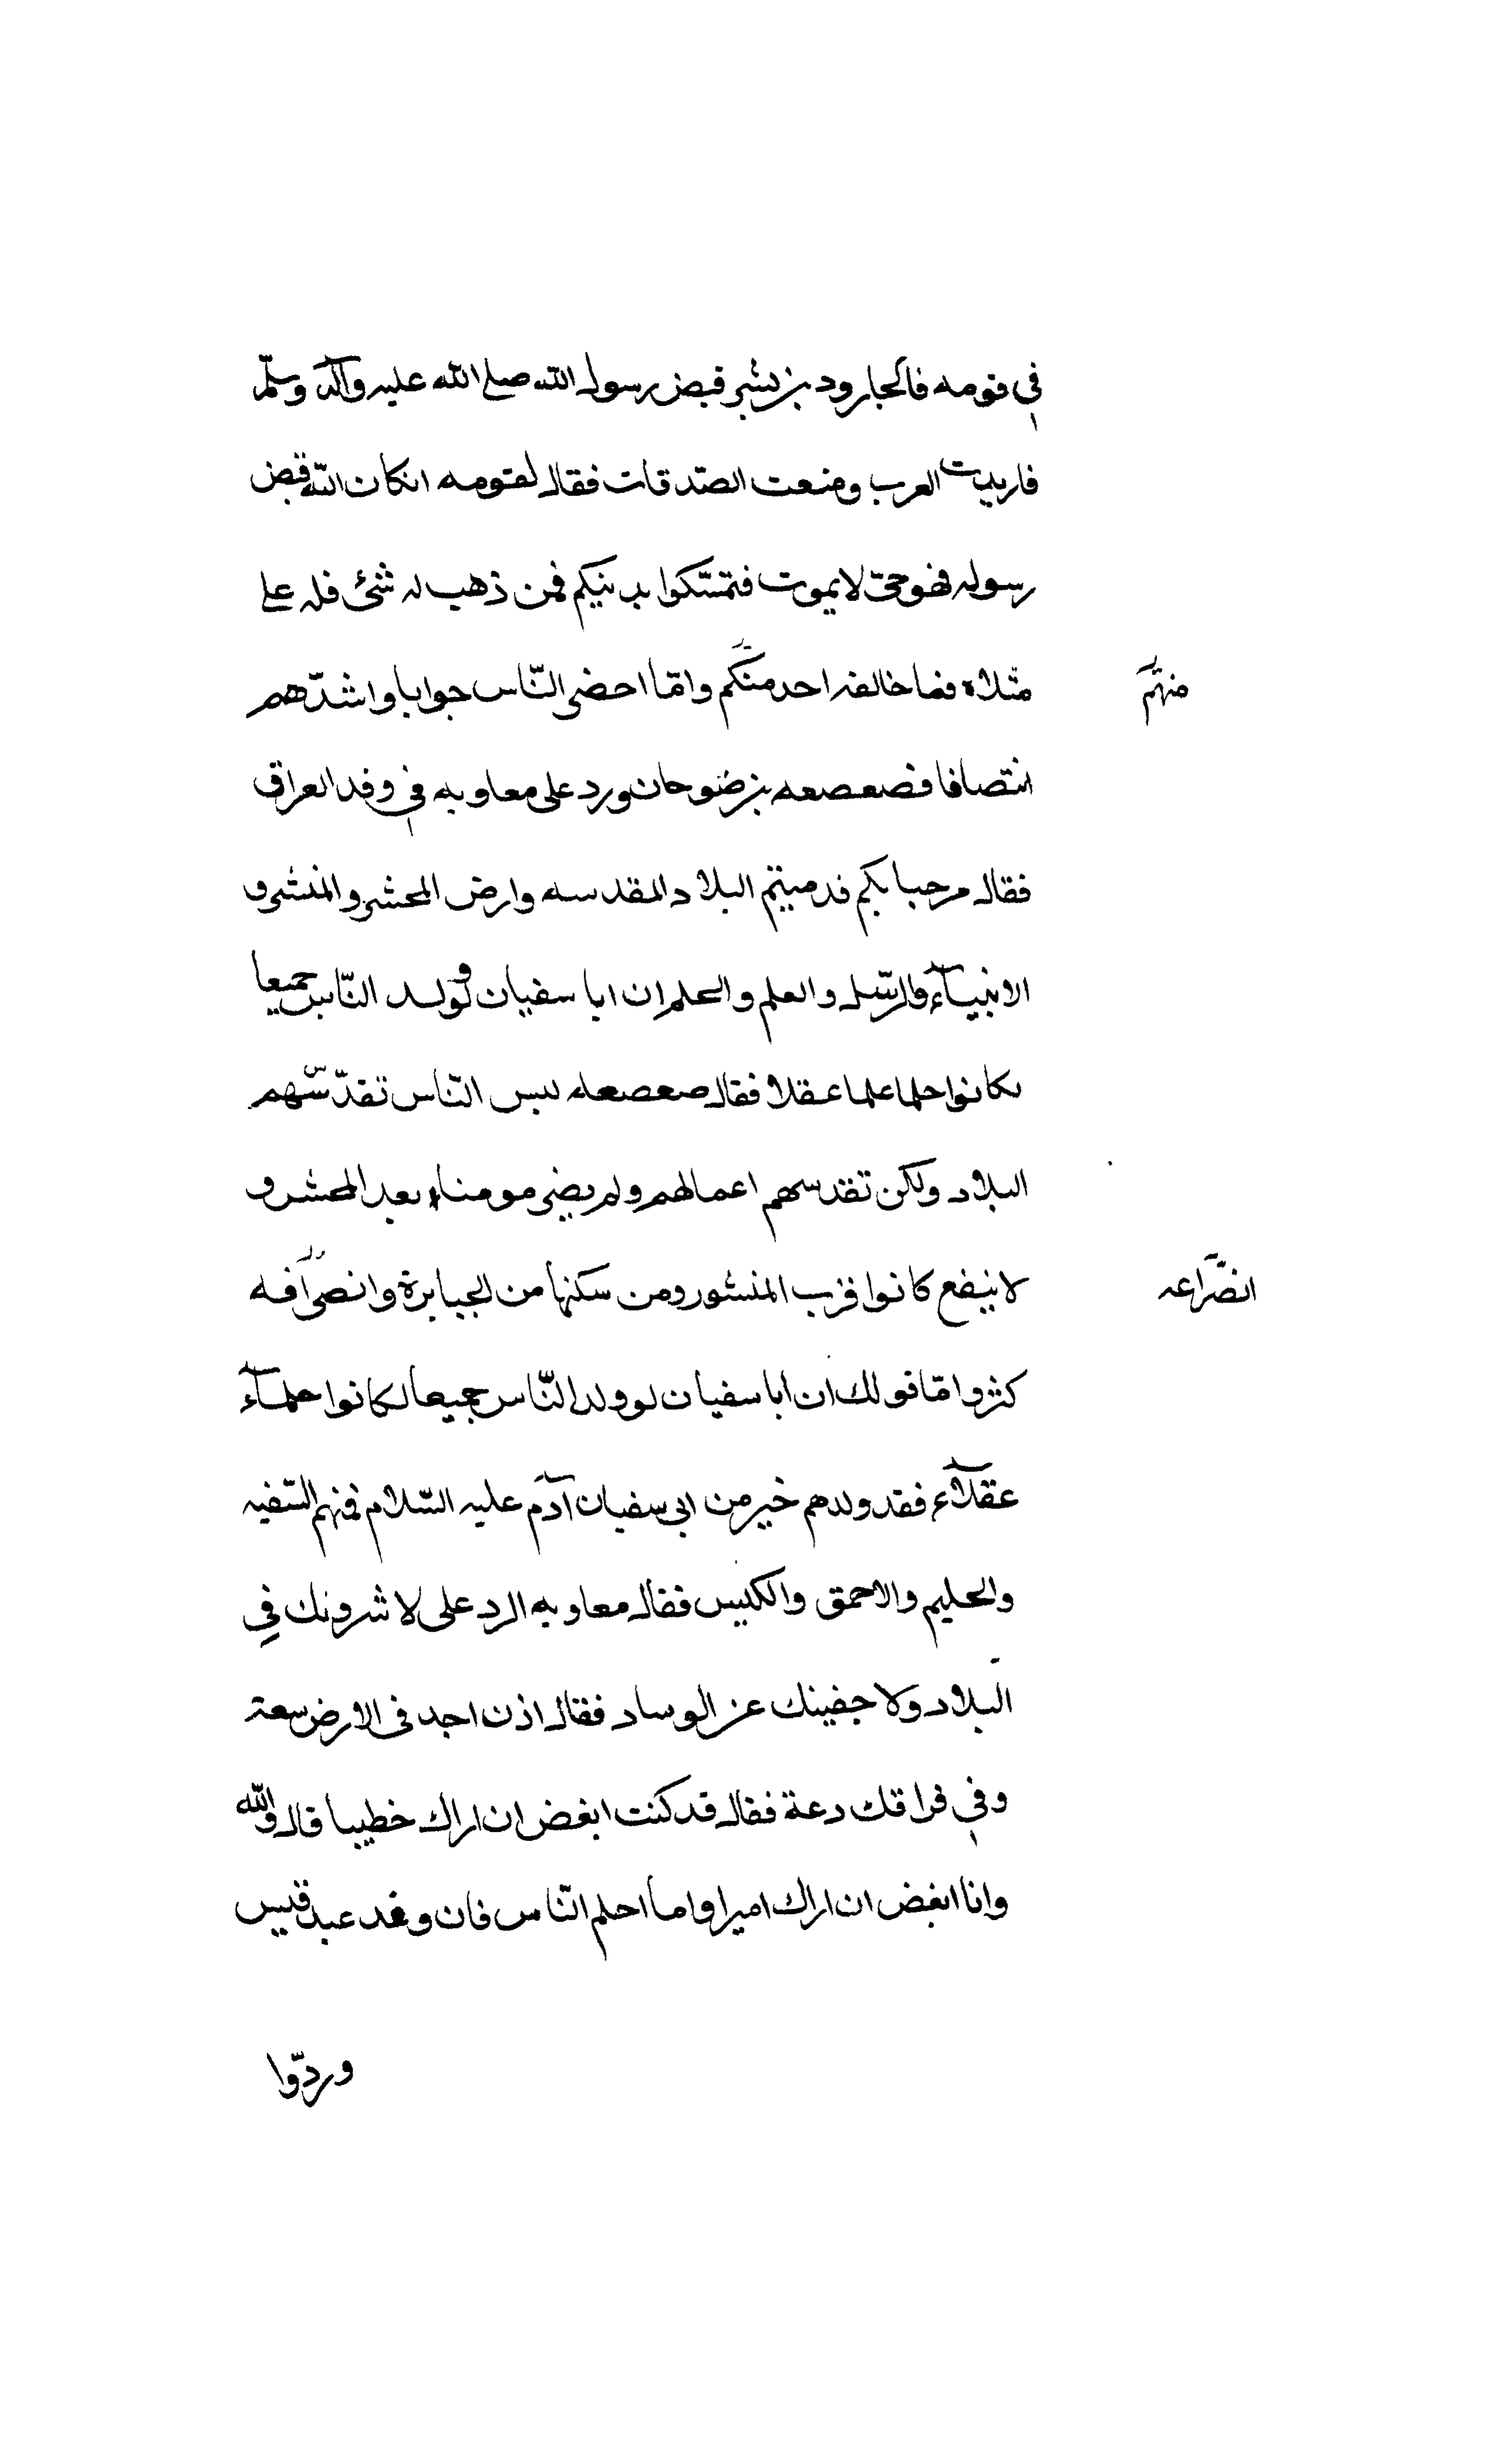 في قومه فالجارود بن بشر قبض رسول الله صلى الله عليه وآله وسلم
فاريدت العرب ومنعت الصدقات فقال لقومه انكان الله قبض
رسوله فهو حي لا يموت فتمسكوا بدينكم فمن ذهب له شئ فله على
مثلاه فما خالفه احد منكم واما احضر الناس جوابا واشدهم
منهم
انتصافا فصعصعه بن صوحان ورد على معاويه في وفد العراق
فقال مرحبا بكم قدمتم البلاد المقدسه وارض المحشر والمنشر و
الانبياء والرسل والعلم والحلم ان ابا سفيان لو ولد الناس جميعا
لكانوا حلما علما عقلا فقال صعصعه ليس الناس تقدسهم
البلاد ولكن تقدسهم اعمالهم ولم يضر مومنا بعد المحشر و
لا ينفع كانوا قرب المنشور ومن سكنها من الجبابرة وانصرافه
انصراعه
كثر واما قولك ان ابا سفيان لو ولد الناس جميعا لكانوا حلماء
عقلاء فقد ولدهم خير من ابي سفيان آدم عليه السلام فمنهم السفيه
والحليم والاحمق والكيس فقال معاويه الرد على لاشرونك في
البلاد ولاجفينك عن الوساد فقال اذن اجد في الارض سعة
وفي فراقك دعة فقال قد كنت ابغض ان اراك خطيبا قال والله
وانا ابغض ان اراك اميرا واما احلم الناس فان وفد عبد قيس
وردوا